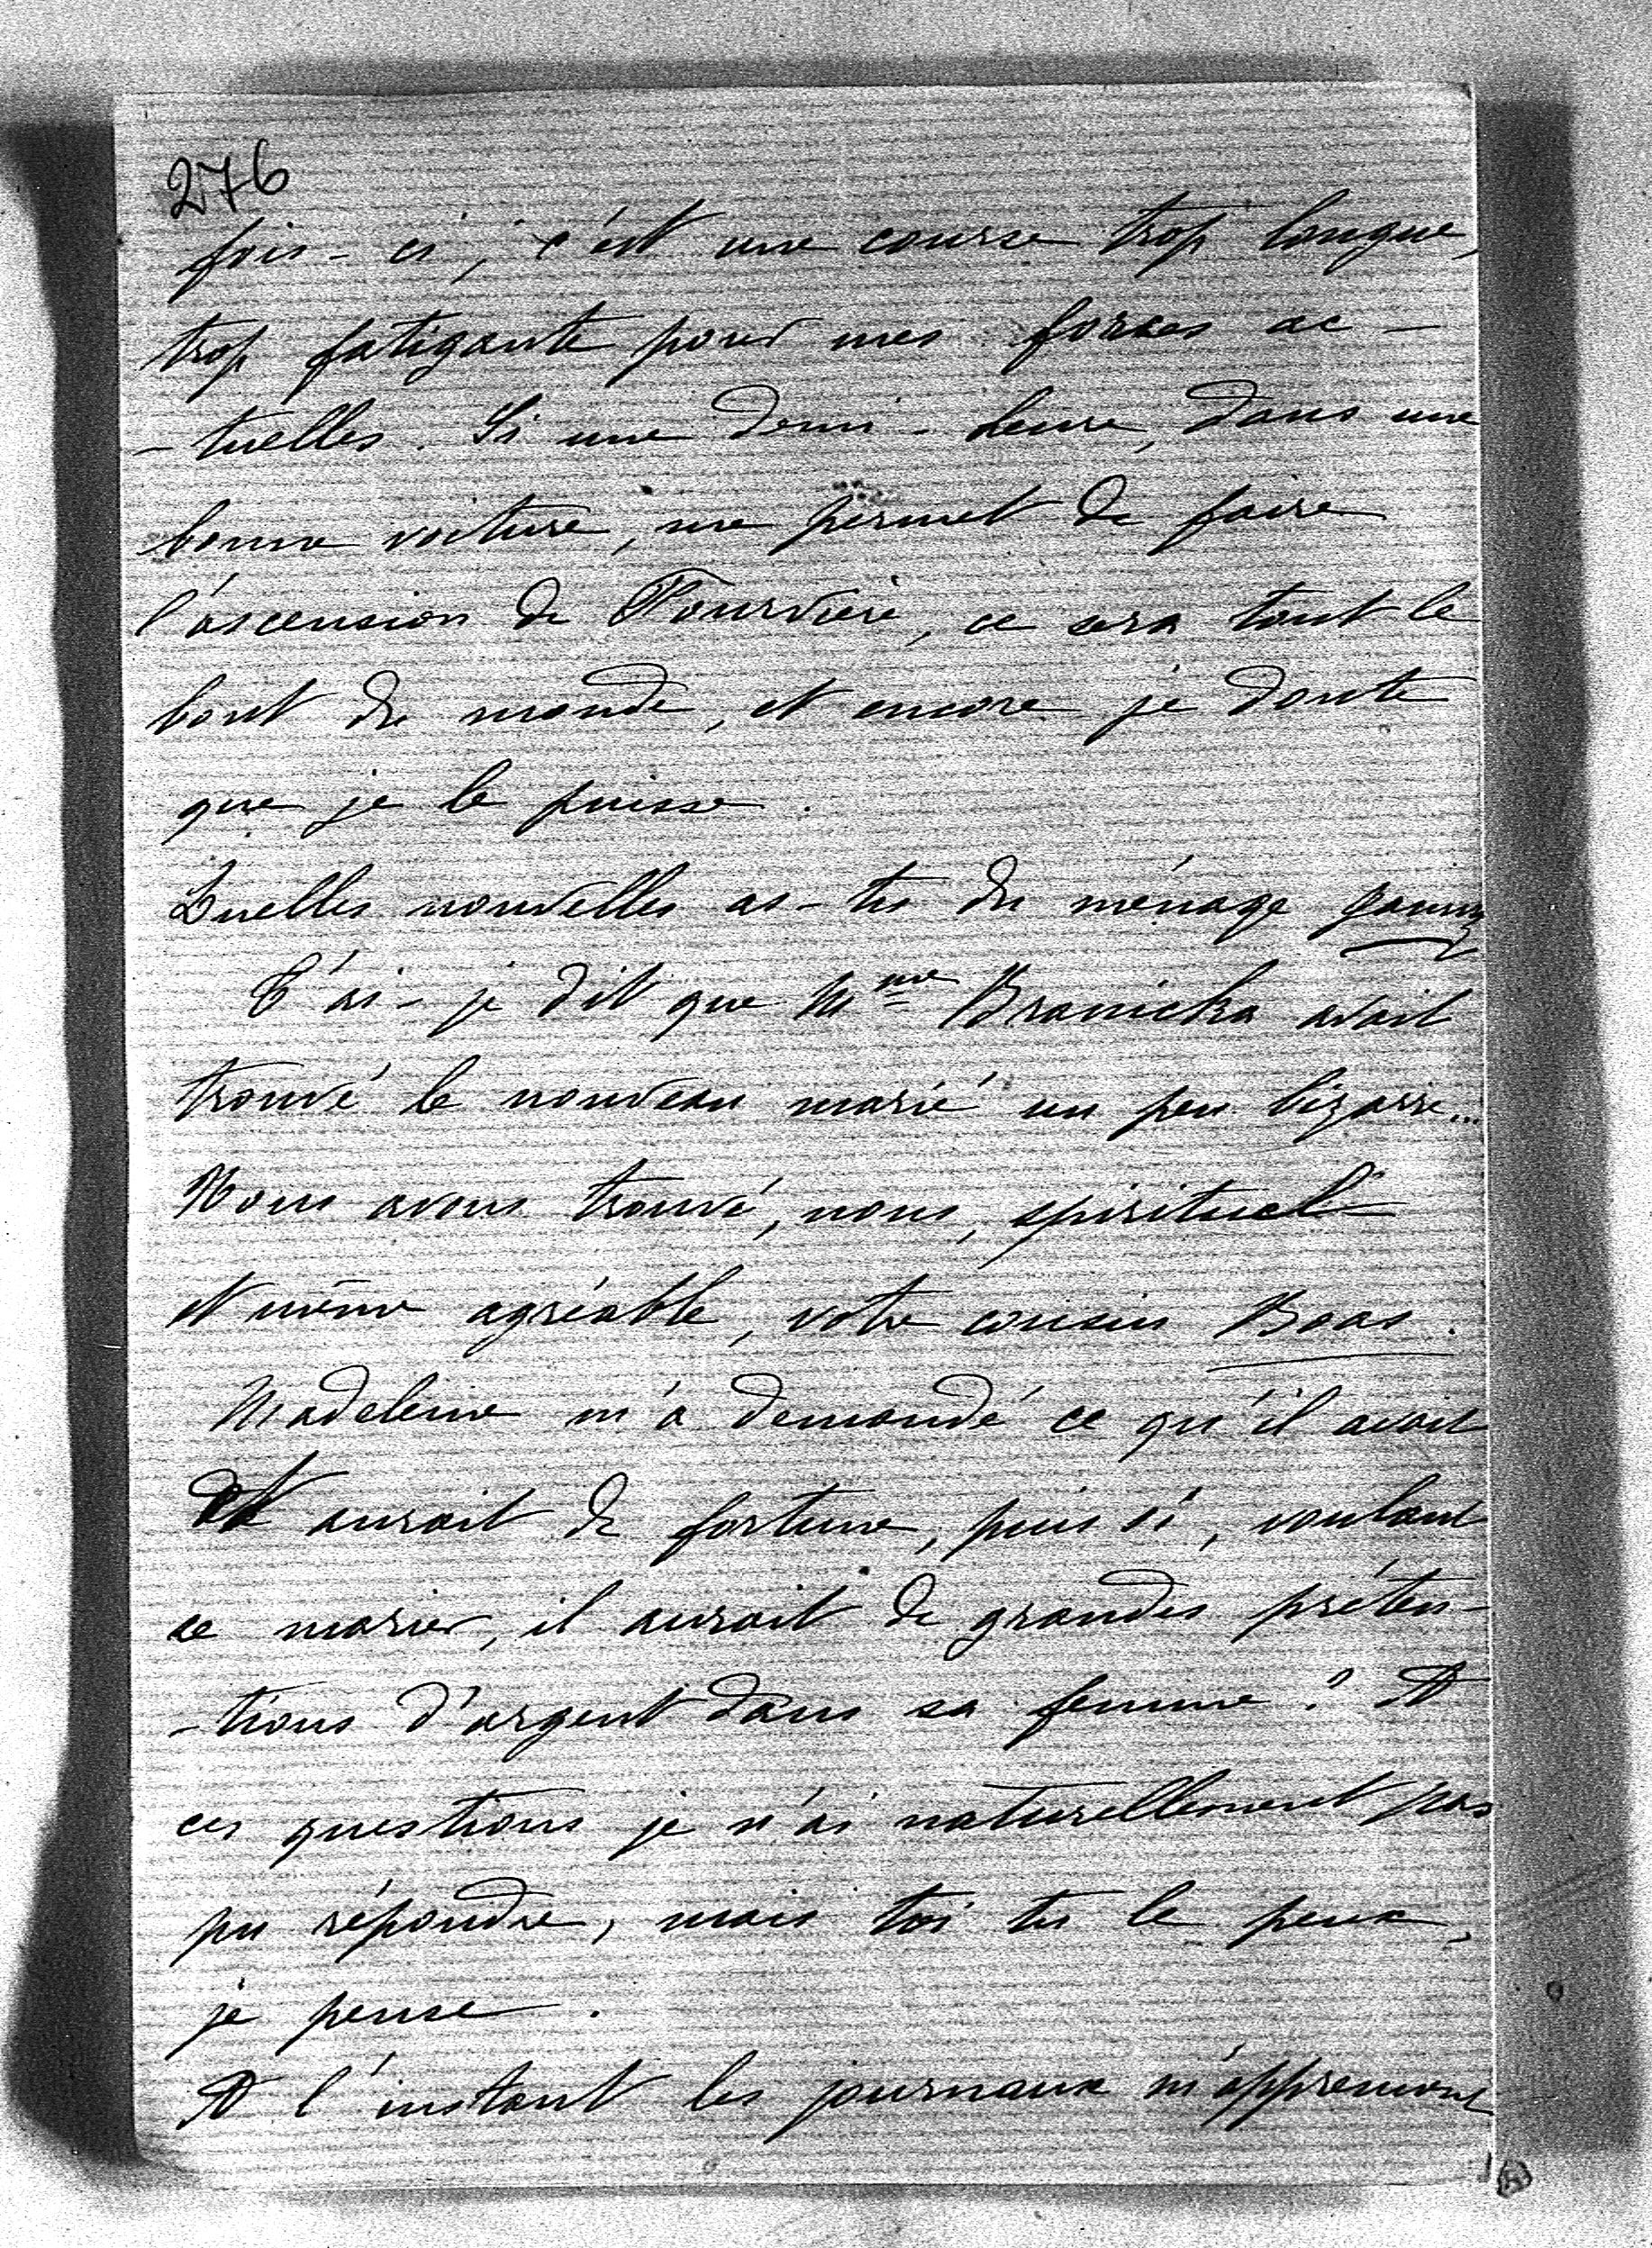 276
fois-ci, c'est une course trop longue,
trop fatigante pour mes forces ac-
-tuelles. Si une demi-heure, dans une
bonne voiture, me permet de faire
l'ascension de Fourvière, ce sera tout le
bout du monde, et encore je doute
que je le puisse.
Quelles nouvelles as-tu du ménage
T'ai-je dit que Mme Branicka avait
trouvé le nouveau marié un peu bizarre...
Nous avons trouvé, nous, spirituel
et même agréable, votre cousin Boas.
Madeleine m'a demandé ce qu'il avait
et aurait de fortune, puis si, voulant
se marier, il aurait de grandes préten-
-tions d'argent dans sa femme? A
ces questions je n'ai naturellement pas
pu répondre, mais toi tu le peux,
je pense.
A l'instant les journaux m'apprennent